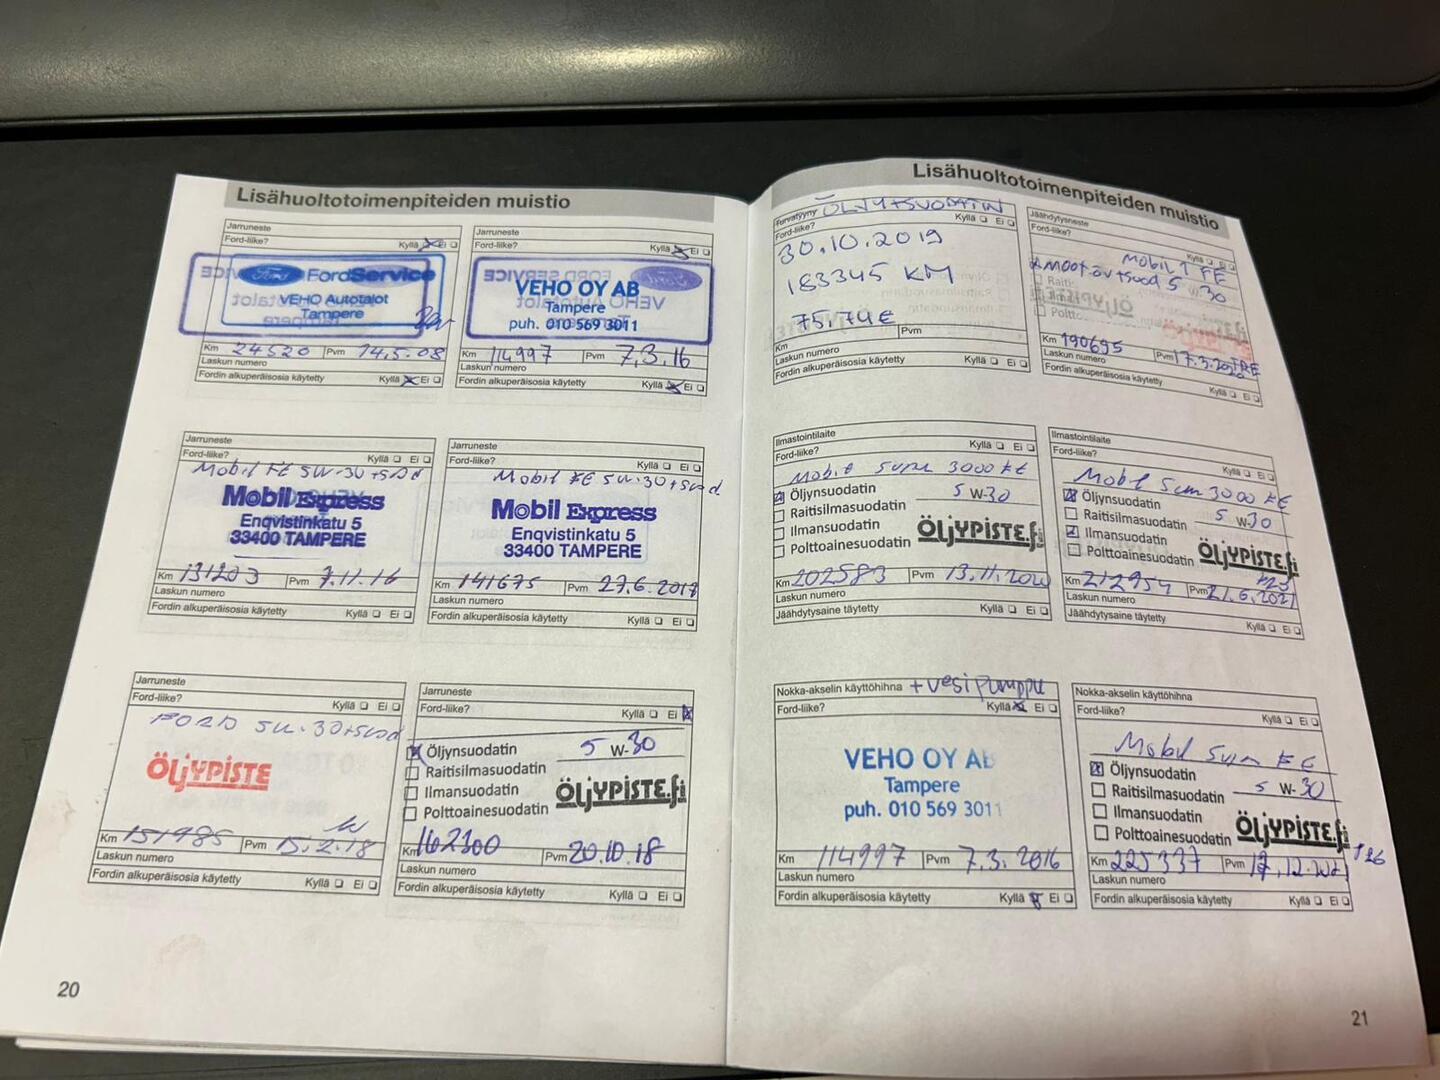 Lisähuoltotoimenpiteiden muistio
Jarruneste
Ford-liike? Kyllä Ei
FordService
VEHO Autotalot
Tampere
Km 24520 Pvm 14.5.08
Laskun numero
Fordin alkuperäisosia käytetty Kyllä Ei
Jarruneste
Ford-liike? Kyllä Ei
VEHO OY AB
Tampere
puh. 010 569 3011
Km 114997 Pvm 7.3.16
Laskun numero
Fordin alkuperäisosia käytetty Kyllä Ei
Jarruneste
Ford-liike? Kyllä Ei
Mobil FE 5W-30+suod
Mobil Express
Enqvistinkatu 5
33400 TAMPERE
Km 131203 Pvm 7.11.16
Laskun numero
Fordin alkuperäisosia käytetty Kyllä Ei
Jarruneste
Ford-liike? Kyllä Ei
Mobil FE 5W-30+suod
Mobil Express
Enqvistinkatu 5
33400 TAMPERE
Km 141675 Pvm 27.6.2017
Laskun numero
Fordin alkuperäisosia käytetty Kyllä Ei
Jarruneste
Ford-liike? Kyllä Ei
FORD 5W-30+suod
ÖljYPISTE
Km 151985 Pvm 15.2.18
Laskun numero
Fordin alkuperäisosia käytetty Kyllä Ei
Jarruneste
Ford-liike? Kyllä Ei
Öljynsuodatin 5 W-30
Raitisilmasuodatin
Ilmansuodatin
Polttoainesuodatin
ÖljYPISTE.fi
Km 162300 Pvm 20.10.18
Laskun numero
Fordin alkuperäisosia käytetty Kyllä Ei
20
Lisähuoltotoimenpiteiden muistio
Turvatyyny ÖLJY+SUODATIN
Ford-liike? Kyllä Ei
30.10.2019
183345 KM
75.74€
Pvm
Laskun numero
Fordin alkuperäisosia käytetty Kyllä Ei
Jäähdytysneste
Ford-liike? Kyllä Ei
Mobil 1 FE
5 W-30
ÖljYPISTE
Km 190695 Pvm 17.3.2020
Laskun numero
Fordin alkuperäisosia käytetty Kyllä Ei
Ilmastointilaite
Ford-liike? Kyllä Ei
Mobil Super 3000 FE
Öljynsuodatin 5 W-30
Raitisilmasuodatin
Ilmansuodatin
Polttoainesuodatin
ÖljYPISTE.fi
Km 202583 Pvm 13.11.2020
Laskun numero
Jäähdytysaine täytetty Kyllä Ei
Ilmastointilaite
Ford-liike? Kyllä Ei
Mobil Super 3000 FE
Öljynsuodatin
Raitisilmasuodatin 5 W-30
Ilmansuodatin
Polttoainesuodatin
ÖljYPISTE.fi
Km 212954 Pvm 21.6.2021
Laskun numero
Jäähdytysaine täytetty Kyllä Ei
Nokka-akselin käyttöhihna +vesipumppu
Ford-liike? Kyllä Ei
VEHO OY AB
Tampere
puh. 010 569 3011
Km 114997 Pvm 7.3.2016
Laskun numero
Fordin alkuperäisosia käytetty Kyllä Ei
Nokka-akselin käyttöhihna
Ford-liike? Kyllä Ei
Mobil Super FE
Öljynsuodatin
Raitisilmasuodatin 5 W-30
Ilmansuodatin
Polttoainesuodatin
ÖljYPISTE.fi
Km 225337 Pvm
Laskun numero
Fordin alkuperäisosia käytetty Kyllä Ei
21